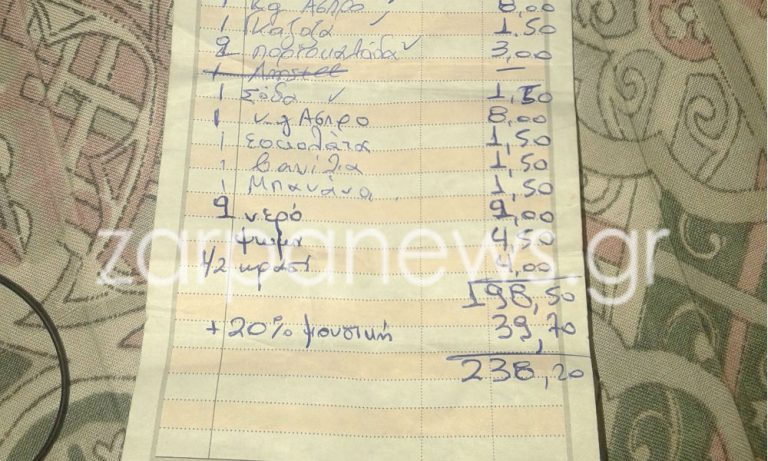 1 κg Ασπρο 8,00
1 Γκαζοζα ✓ 1.50
2 πορτοκαλαδα ✓ 3,00
1 Amstel —
1 Σόδα ✓ 1,50
1 κg Ασπρο 8,00
1 Σοκολάτα 1,50
1 Βανίλια 1,50
1 Μπανάνα 1,50
2 νερό 2,00
ψωμι 4,50
1/2 κρασι 4,00
zarpanews.gr
198,50
+20% μουσική 39,70
238,20